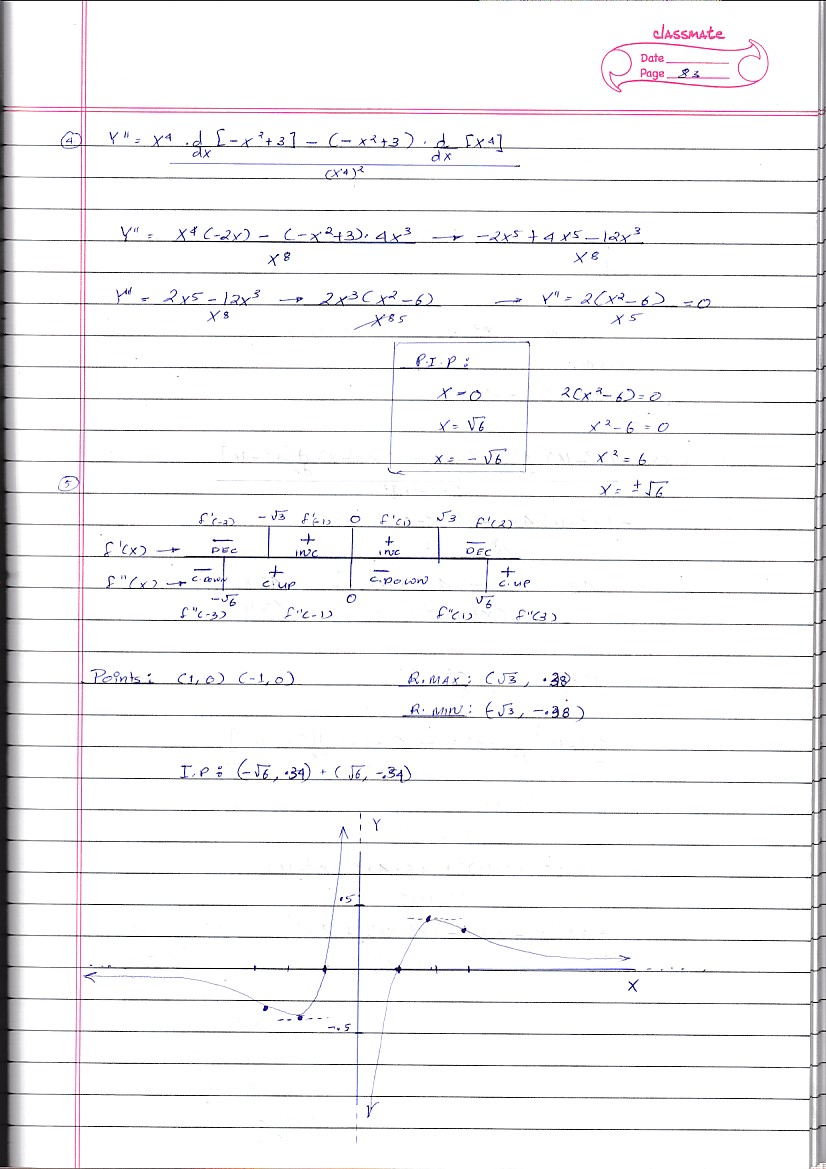 classmate
Date
Page 83
④ Y'' = X⁴ · d/dx [-X²+3] - (-X²+3) · d/dx [X⁴]
(X⁴)²
Y'' = X⁴(-2X) - (-X²+3)·4X³ → -2X⁵ + 4X⁵ - 12X³
X⁸ X⁸
Y'' = 2X⁵ - 12X³ → 2X³(X²-6) → Y'' = 2(X²-6) = 0
X⁸ X⁸ 5 X⁵
P.I.P:
X = 0 2(X²-6) = 0
X = √6 X²-6 = 0
X = -√6 X² = 6
⑤ X = ±√6
f'(-2) -√3 f'(-1) 0 f'(1) √3 f'(2)
f'(X) → - DEC + INC + INC - DEC
f''(X) → - C.DOWN + C.UP - C.DOWN + C.UP
-√6 0 √6
f''(-3) f''(-1) f''(1) f''(3)
Points: (1,0) (-1,0) R.MAX: (√3, .38)
R.MIN: (-√3, -.38)
I.P: (-√6, .34) + (√6, -.34)
Y
.5
X
-.5